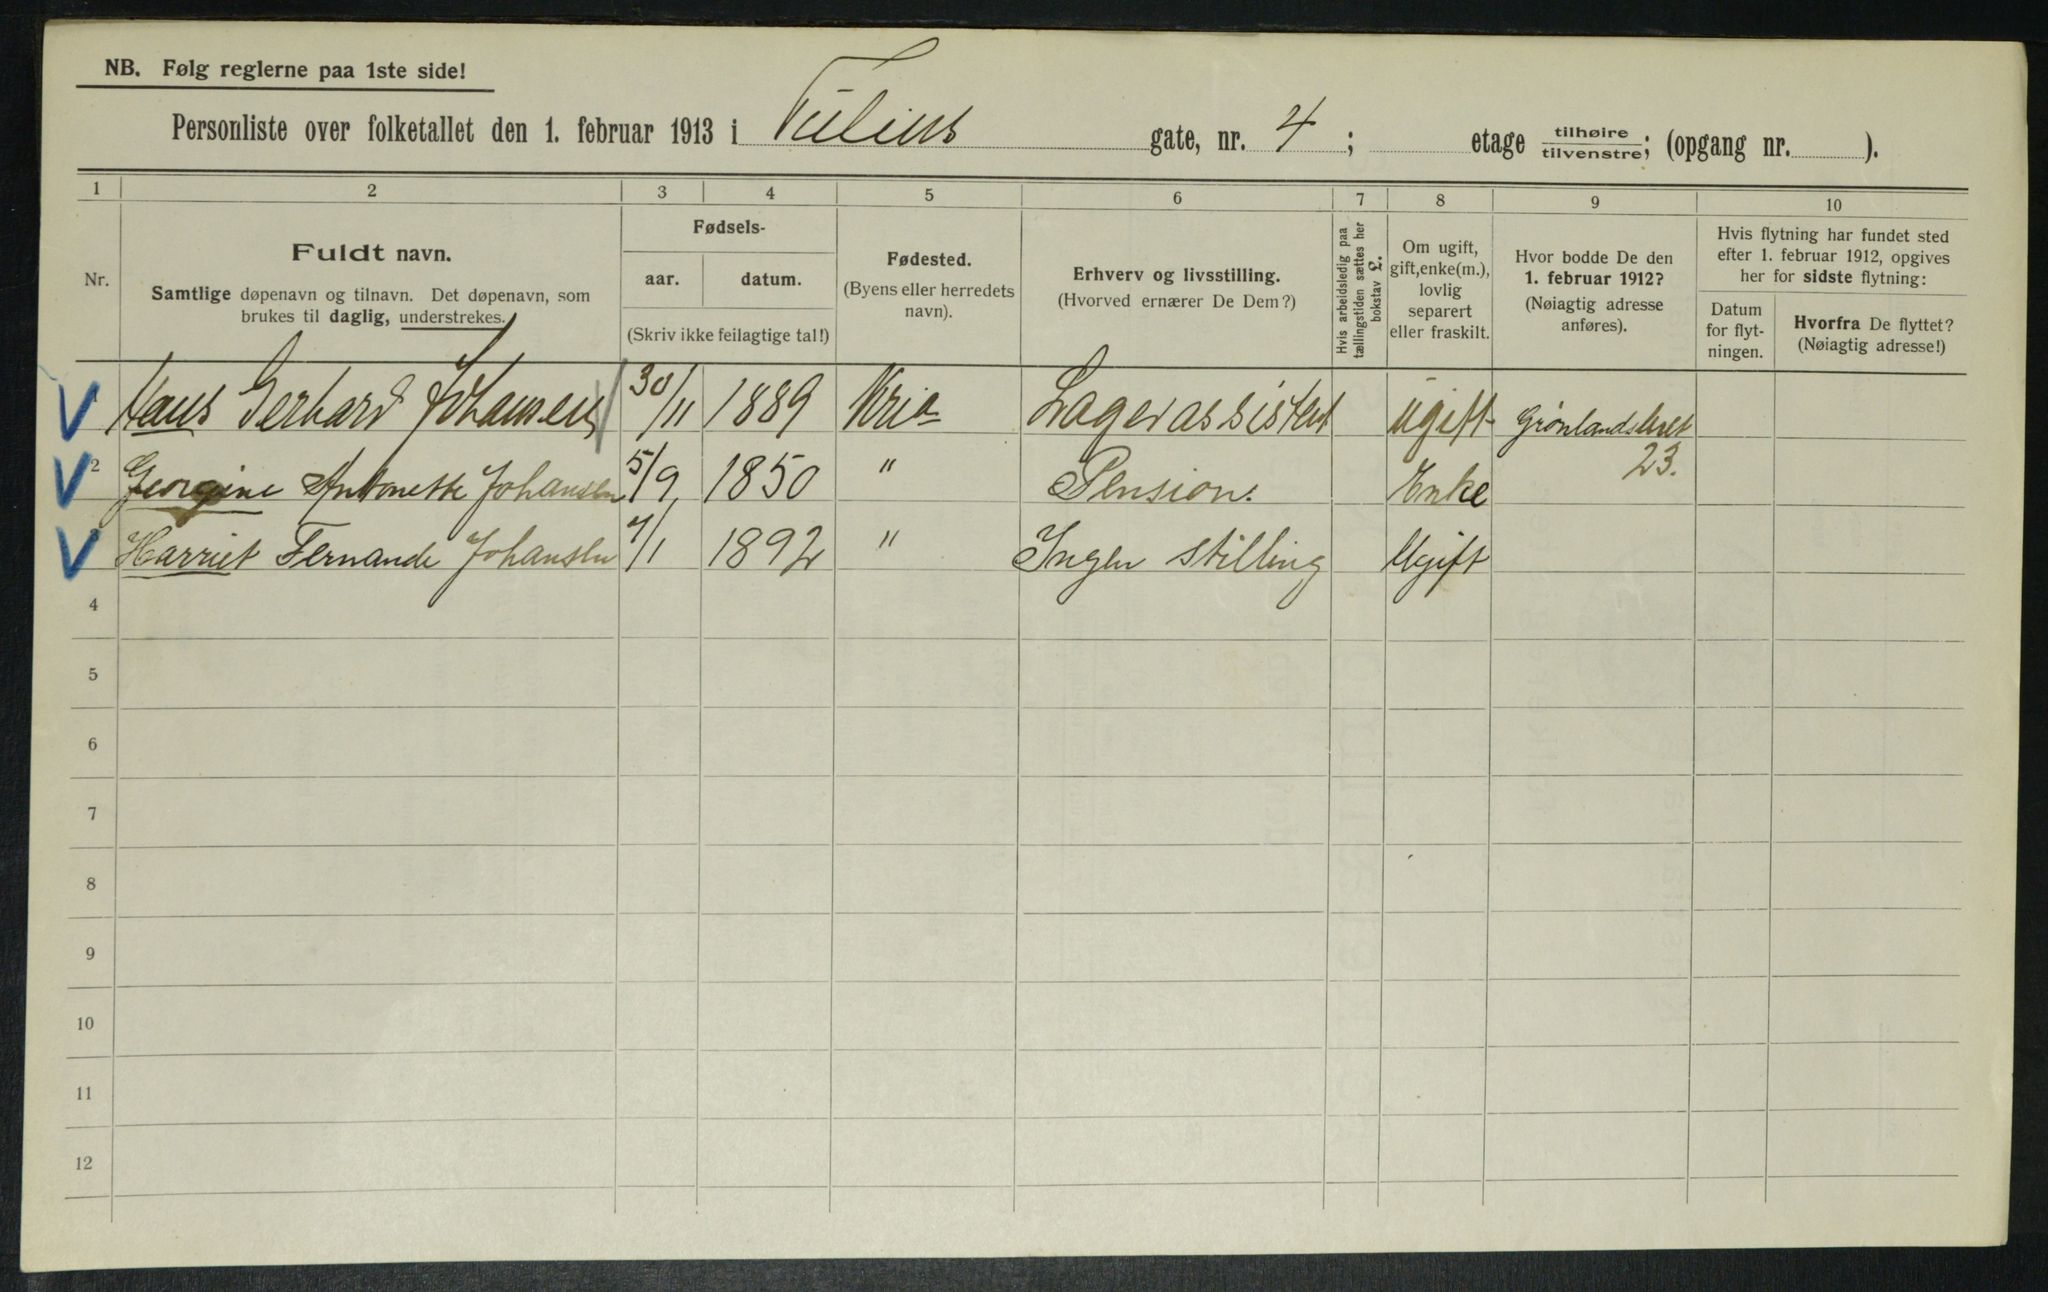 NB. Følg reglerne paa 1ste side!
Personliste over folketallet den 1. februar 1913 i Tullins gate, nr. 4; etage tilhøire/tilvenstre; (opgang nr. ).
1 2 3 4 5 6 7 8 9 10
Nr.
Fuldt navn.
Samtlige døpenavn og tilnavn. Det døpenavn, som
brukes til daglig, understrekes.
Fødsels-
aar. datum.
(Skriv ikke feilagtige tal!)
Fødested.
(Byens eller herredets
navn).
Erhverv og livsstilling.
(Hvorved ernærer De Dem?)
Hvis arbeidsledig paa
tællingstiden sættes her
bokstav L.
Om ugift,
gift, enke(m.),
lovlig
separert
eller fraskilt.
Hvor bodde De den
1. februar 1912?
(Nøiagtig adresse
anføres).
Hvis flytning har fundet sted
efter 1. februar 1912, opgives
her for sidste flytning:
Datum
for flyt-
ningen.
Hvorfra De flyttet?
(Nøiagtig adresse!)
Hans Gerhard Johansen 30/11 1889 Kria Lagerassistent ugift Grønlandsleret
23.
2 Georgine Antonette Johansen 5/9 1850 " Pension. Enke
3 Harriet Fernande Johansen 7/1 1892 " Ingen stilling Ugift
4
5
6
7
8
9
10
11
12